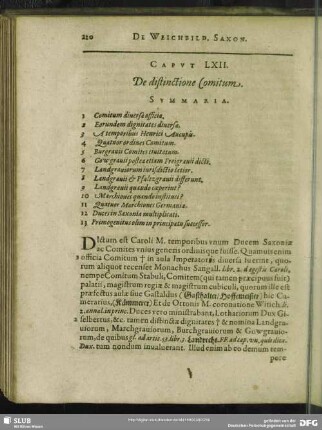 210 DE WEICHBILD. SAXON.
CAPVT LXII.
De distinctione Comitum.
SVMMARIA.
1 Comitum diversa officia.
2 Eorundem dignitates diversæ.
3 A temporibus Henrici Aucupis.
4 Quatuor ordines Comitum.
5 Burgravii Comites civitatum.
6 Gowgravii postea ettam Freigravii dicti.
7 Landgraviorum iurisdictio latior.
8 Landgravii & Pfaltzgravii differunt.
9 Landgravii quando cœperint?
10 Marchiones quando instituti?
11 Quatuor Marchiones Germaniæ.
12 Duces in Saxonia multiplicati.
13 Primogenitus olim in principatu successor.
DIctum est Caroli M. temporibus unum Ducem Saxoniæ
ac Comites unius generis ordinisque fuisse. Quamvis enim
officia Comitum † in aula Imperatoris diversa fuerint, quo-
rum aliquot recenset Monachus Sangall. libr. 2. de gestis Caroli,
nempe Comitum Stabuli, Comitem (qui tamen præcipuus fuit)
palatii, magistrum regis & magistrum cubiculi, quorum ille est
præfectus aulæ sive Gastaldius (Gasthalter, Hoffemeister) hic Ca-
merarius, (Kämmerer) Et de Ottonis M. coronatione Witich. lib.
2. annal. in princ. Duces vero ministrabant, Lothariorum Dux Gi-
selbertus, &c. tamen distinctæ dignitates † & nomina Landgra-
viorum, Marchgraviorum, Burchgraviorum & Gowgravio-
rum, de quibus
Dux. tum nondum invaluerant. Illud enim ab eo demum tem-
pore
SLUB
Wir führen Wissen.
gefördert von der
Deutschen Forschungsgemeinschaft